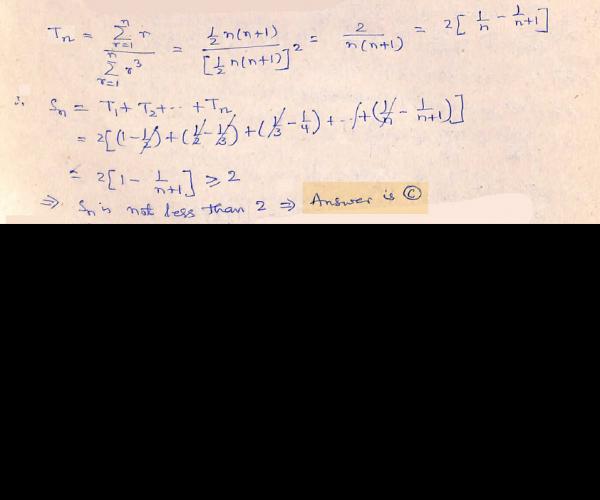 Tn = \frac{\sum_{r=1}^{n} r}{\sum_{r=1}^{n} r^3} = \frac{\frac{1}{2} n(n+1)}{[\frac{1}{2} n(n+1)]^2} = \frac{2}{n(n+1)} = 2[\frac{1}{n} - \frac{1}{n+1}]
∴ Sn = T1 + T2 + ... + Tn
= 2[(1 - \frac{1}{2}) + (\frac{1}{2} - \frac{1}{3}) + (\frac{1}{3} - \frac{1}{4}) + ... + (\frac{1}{n} - \frac{1}{n+1})]
= 2[1 - \frac{1}{n+1}] ⩾ 2
⇒ Sn is not less than 2 ⇒ Answer is Ⓒ